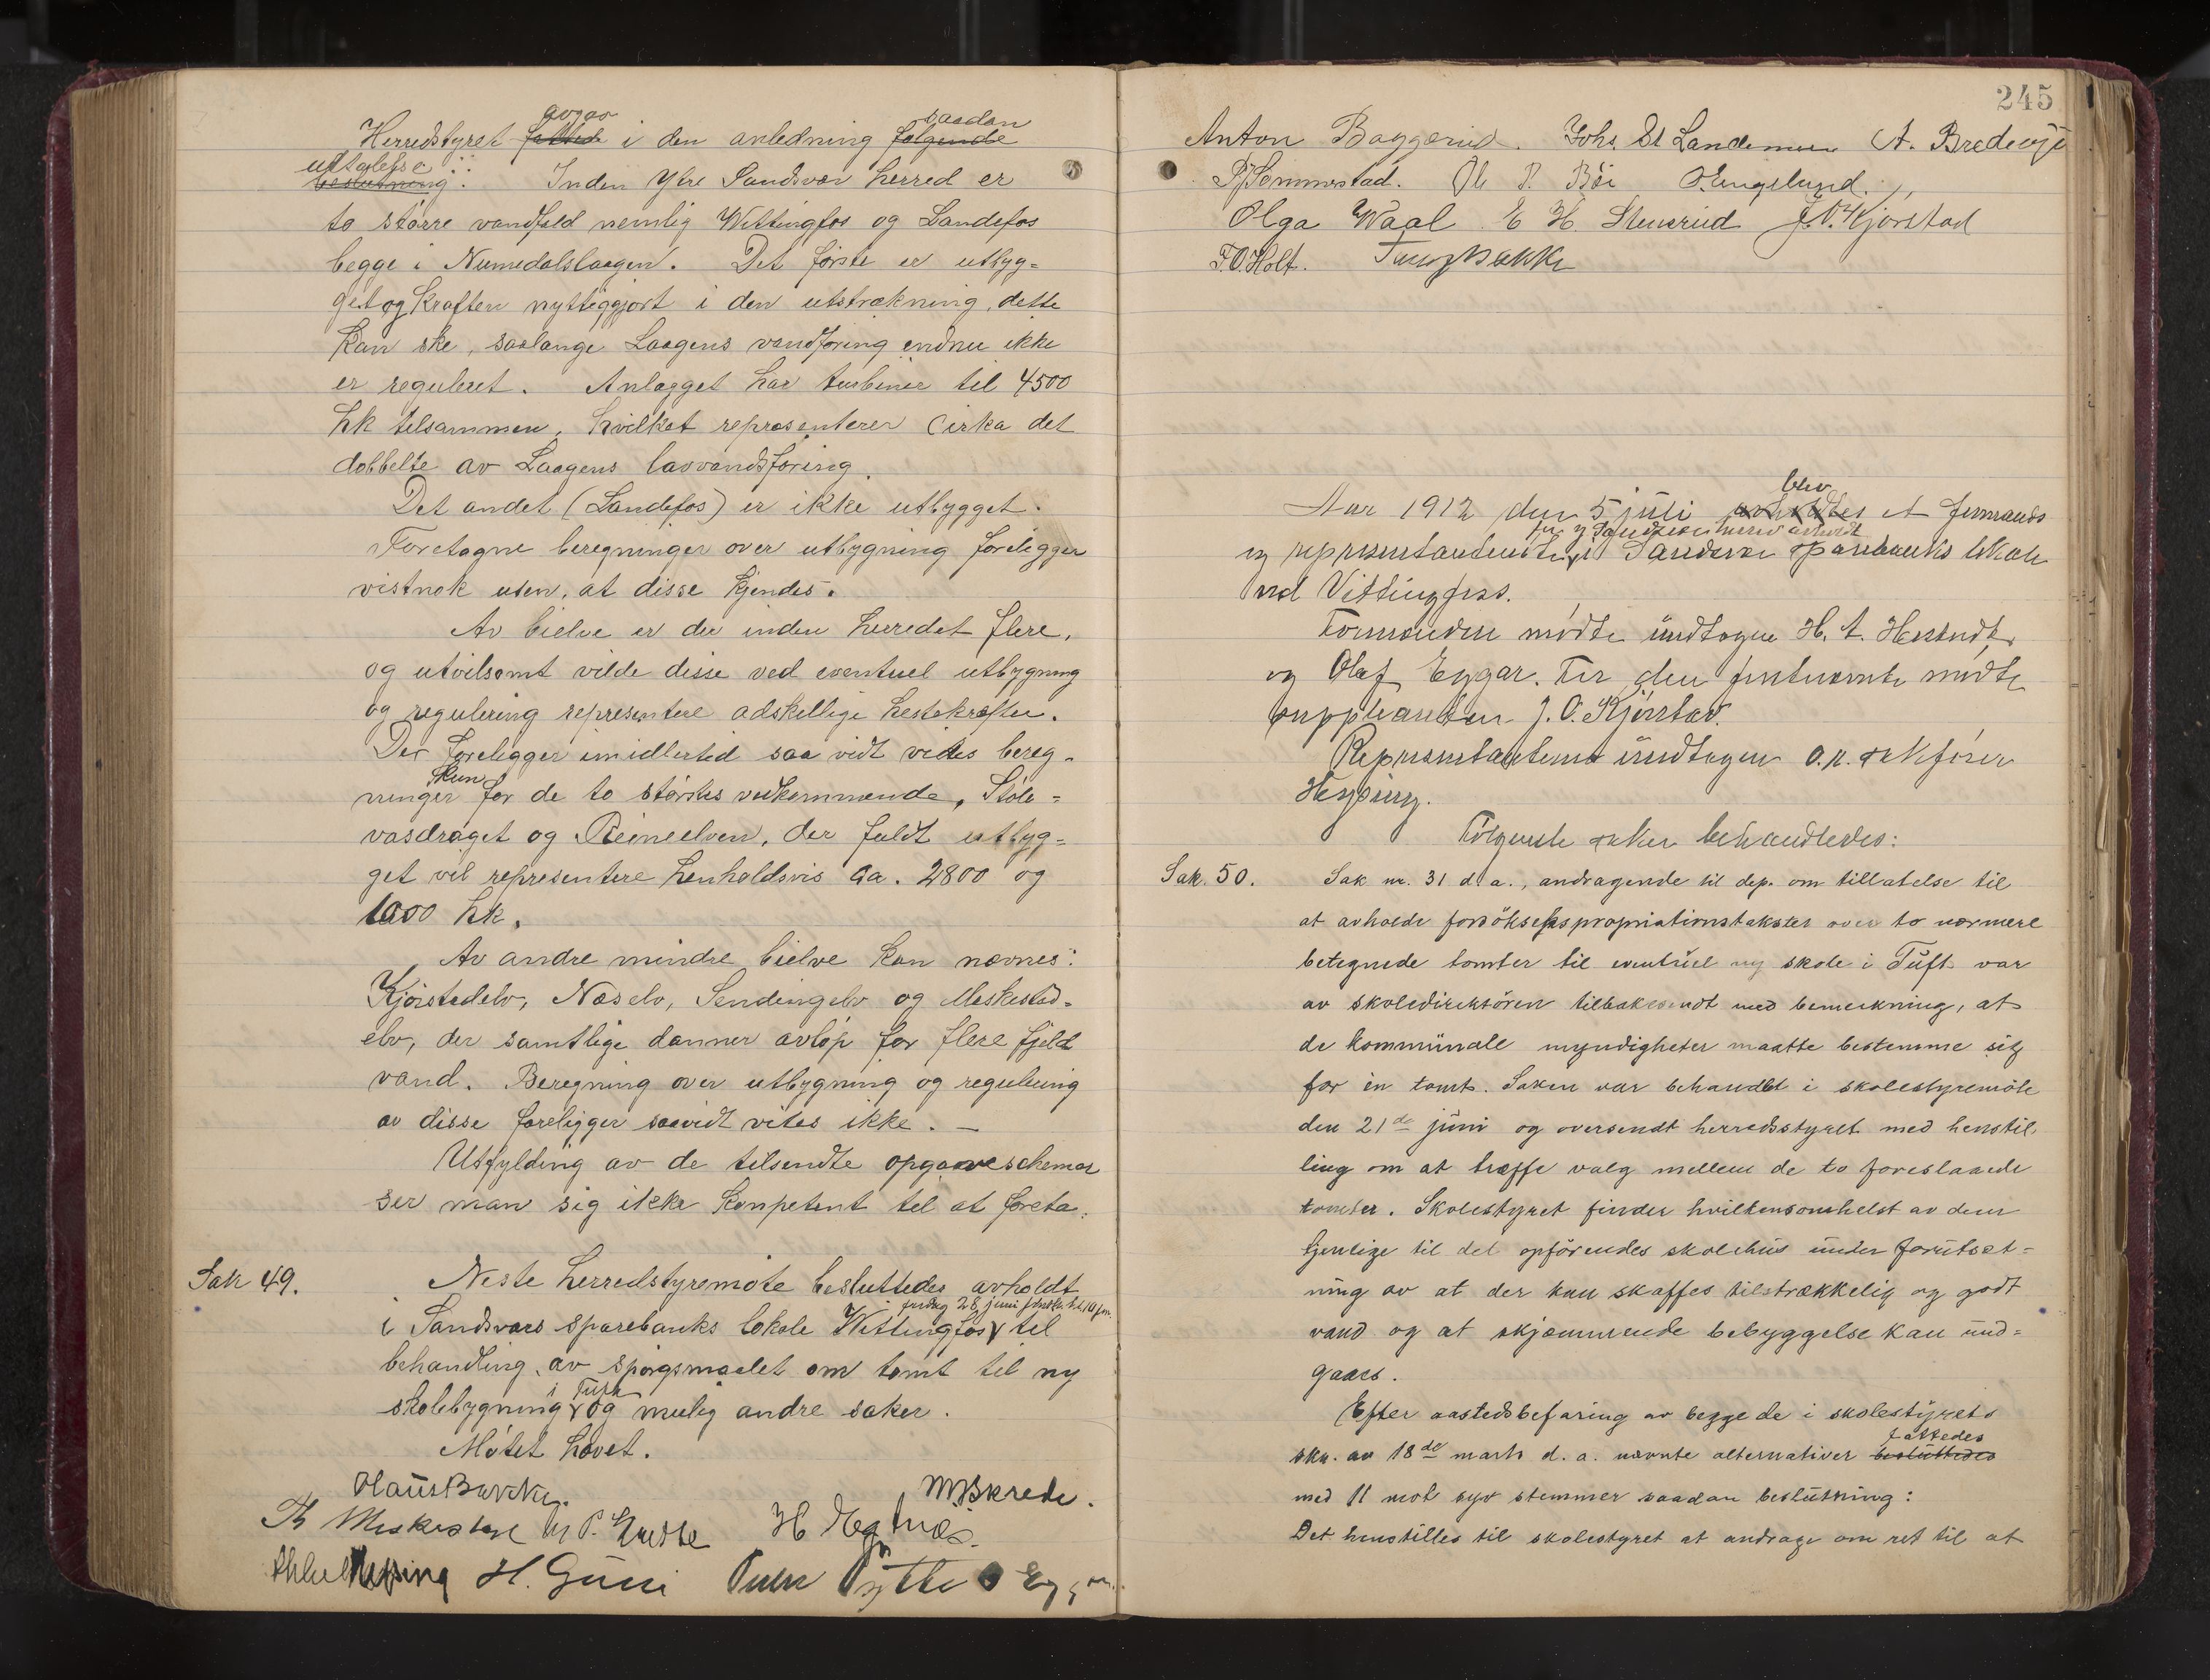 Herredstyret fattede avgav i den anledning følgende saadan
beslutning: uttalelse: Inden Ytre Sandsvær herred er
to større vandfald nemlig Wittingfos og Landefos
begge i Numedalslaagen. Det første er utbyg=
get og kraften nyttiggjort i den utstrækning, dette
kan ske, saalænge Laagens vandføring endnu ikke
er reguleret. Anlægget har turbiner til 4500
hk tilsammen, hvilket representerer cirka det
dobbelte av Laagens lavvandsføring.
Det andet (Landefos) er ikke utbygget.
Foretagne beregninger over utbygning foreligger
vistnok uten, at disse kjendes.
Av bielve er der inden herredet flere,
og utvilsomt vilde disse ved eventuel utbygning
og regulering representere adskellige hestekræfter.
Der foreligger imidlertid saa vidt vides bereg-
ninger kun for de to størstes vedkommende, Støle=
vasdraget og Reineelven, der fuldt utbyg=
get vil representere henholdsvis ca. 2800 og
1000 hk.
Av andre mindre bielve kan nævnes:
Kjørstadelv, Næselv, Sendingelv og Meskestad=
elv, der samtlige danner avløp for flere fjeld
vand. Beregning over utbygning og regulering
av disse foreligger saavidt vites ikke. —
Utfylding av de tilsendte opgaveschemar
ser man sig ikke konpetent til at foreta.
Sak 49.
Neste herredstyremøte besluttedes avholdt
i Sandsværs sparebanks lokale Wittingfos fredag 28 juni førstk. kl. 10 fm. til
behandling av spørgsmaalet om tomt til ny
skolebygning i Tuft og mulig andre saker.
Møtet hævet.
M. Skrede.
H. P.
H. Gunni O Eggar
245
Anton Baggerud. Johs. Landemoen A.
P. Sommestad. Ole P. Bøe O. Engelund.
Olga Waal E H Stensrud J. O. Kjørstad
F. O. Holt. Bakke
Aar 1912 den 5 juli avholdtes blev et formands
og representantmøte for y. Sandsvær herred avholdt i Sandsvær sparebanks lokale
ved Vittingfoss.
Formændene mødte undtagen H. A.
og Olaf Eggar. For den førstnævnte mødte
suppleanten J. O. Kjørstad.
Representanterne undtagen o.r. sakfører
Heyerdahl.
Følgende saker behandledes:
Sak. 50.
Sak nr. 31 d. a., andragende til dep. om tillatelse til
at avholde forsøksekspropriationstakster over to nærmere
betegnede tomter til eventuel ny skole i Tuft var
av skoledirektøren tilbakesendt med bemerkning, at
de kommunale myndigheter maatte bestemme sig
for én tomt. Saken var behandlet i skolestyremøte
den 21de juni og oversendt herredsstyret med henstil
ling om at træffe valg mellem de to foreslaaede
tomter. Skolestyret finder hvilkensomhelst av dem
tjenlige til det opførendes skolehus under forutset=
ning av at der kan skaffes tilstrækkelig og godt
vand og at skjæmmende bebyggelse kan und=
gaaes.
Efter aastedsbefaring av begge de i skolestyrets
skr. av 18de marts d. a. nævnte alternativer besluttedes fattedes
med 11 mot syv stemmer saadan beslutning:
Det henstilles til skolestyret at andrage om ret til at